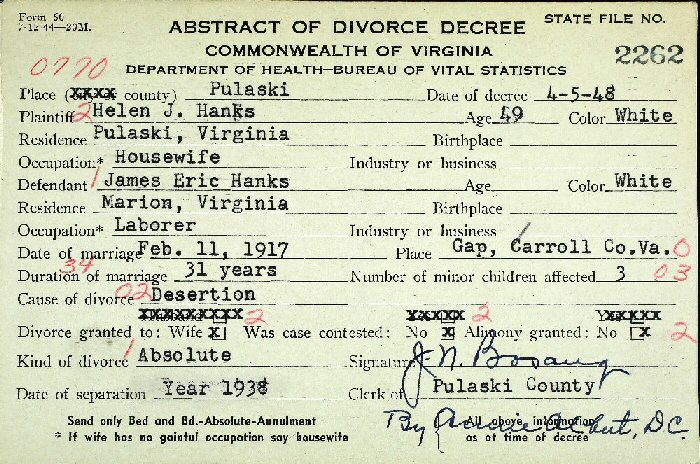 Form 50
7-12-44—20M.
ABSTRACT OF DIVORCE DECREE
STATE FILE NO.
COMMONWEALTH OF VIRGINIA
2262
0770
DEPARTMENT OF HEALTH—BUREAU OF VITAL STATISTICS
Place (XXXX county) Pulaski Date of decree 4-5-48
Plaintiff 2 Helen J. Hanks Age 49 Color White
Residence Pulaski, Virginia Birthplace
Occupation* Housewife Industry or business
Defendant 1 James Eric Hanks Age Color White
Residence Marion, Virginia Birthplace
Occupation* Laborer Industry or business
Date of marriage Feb. 11, 1917 Place Gap, Carroll Co.Va. 0
34
Duration of marriage 31 years Number of minor children affected 3 03
Cause of divorce 02 Desertion
XXXXXXXXX 2 XXXXX 2 XXXXX
Divorce granted to: Wife X Was case contested: No X Alimony granted: No X 2
Kind of divorce 1 Absolute Signature J. N. Bosang
Date of separation Year 1938 Clerk of Pulaski County
Send only Bed and Bd.-Absolute-Annulment All above information
* If wife has no gainful occupation say housewife as at time of decree
By D.C.